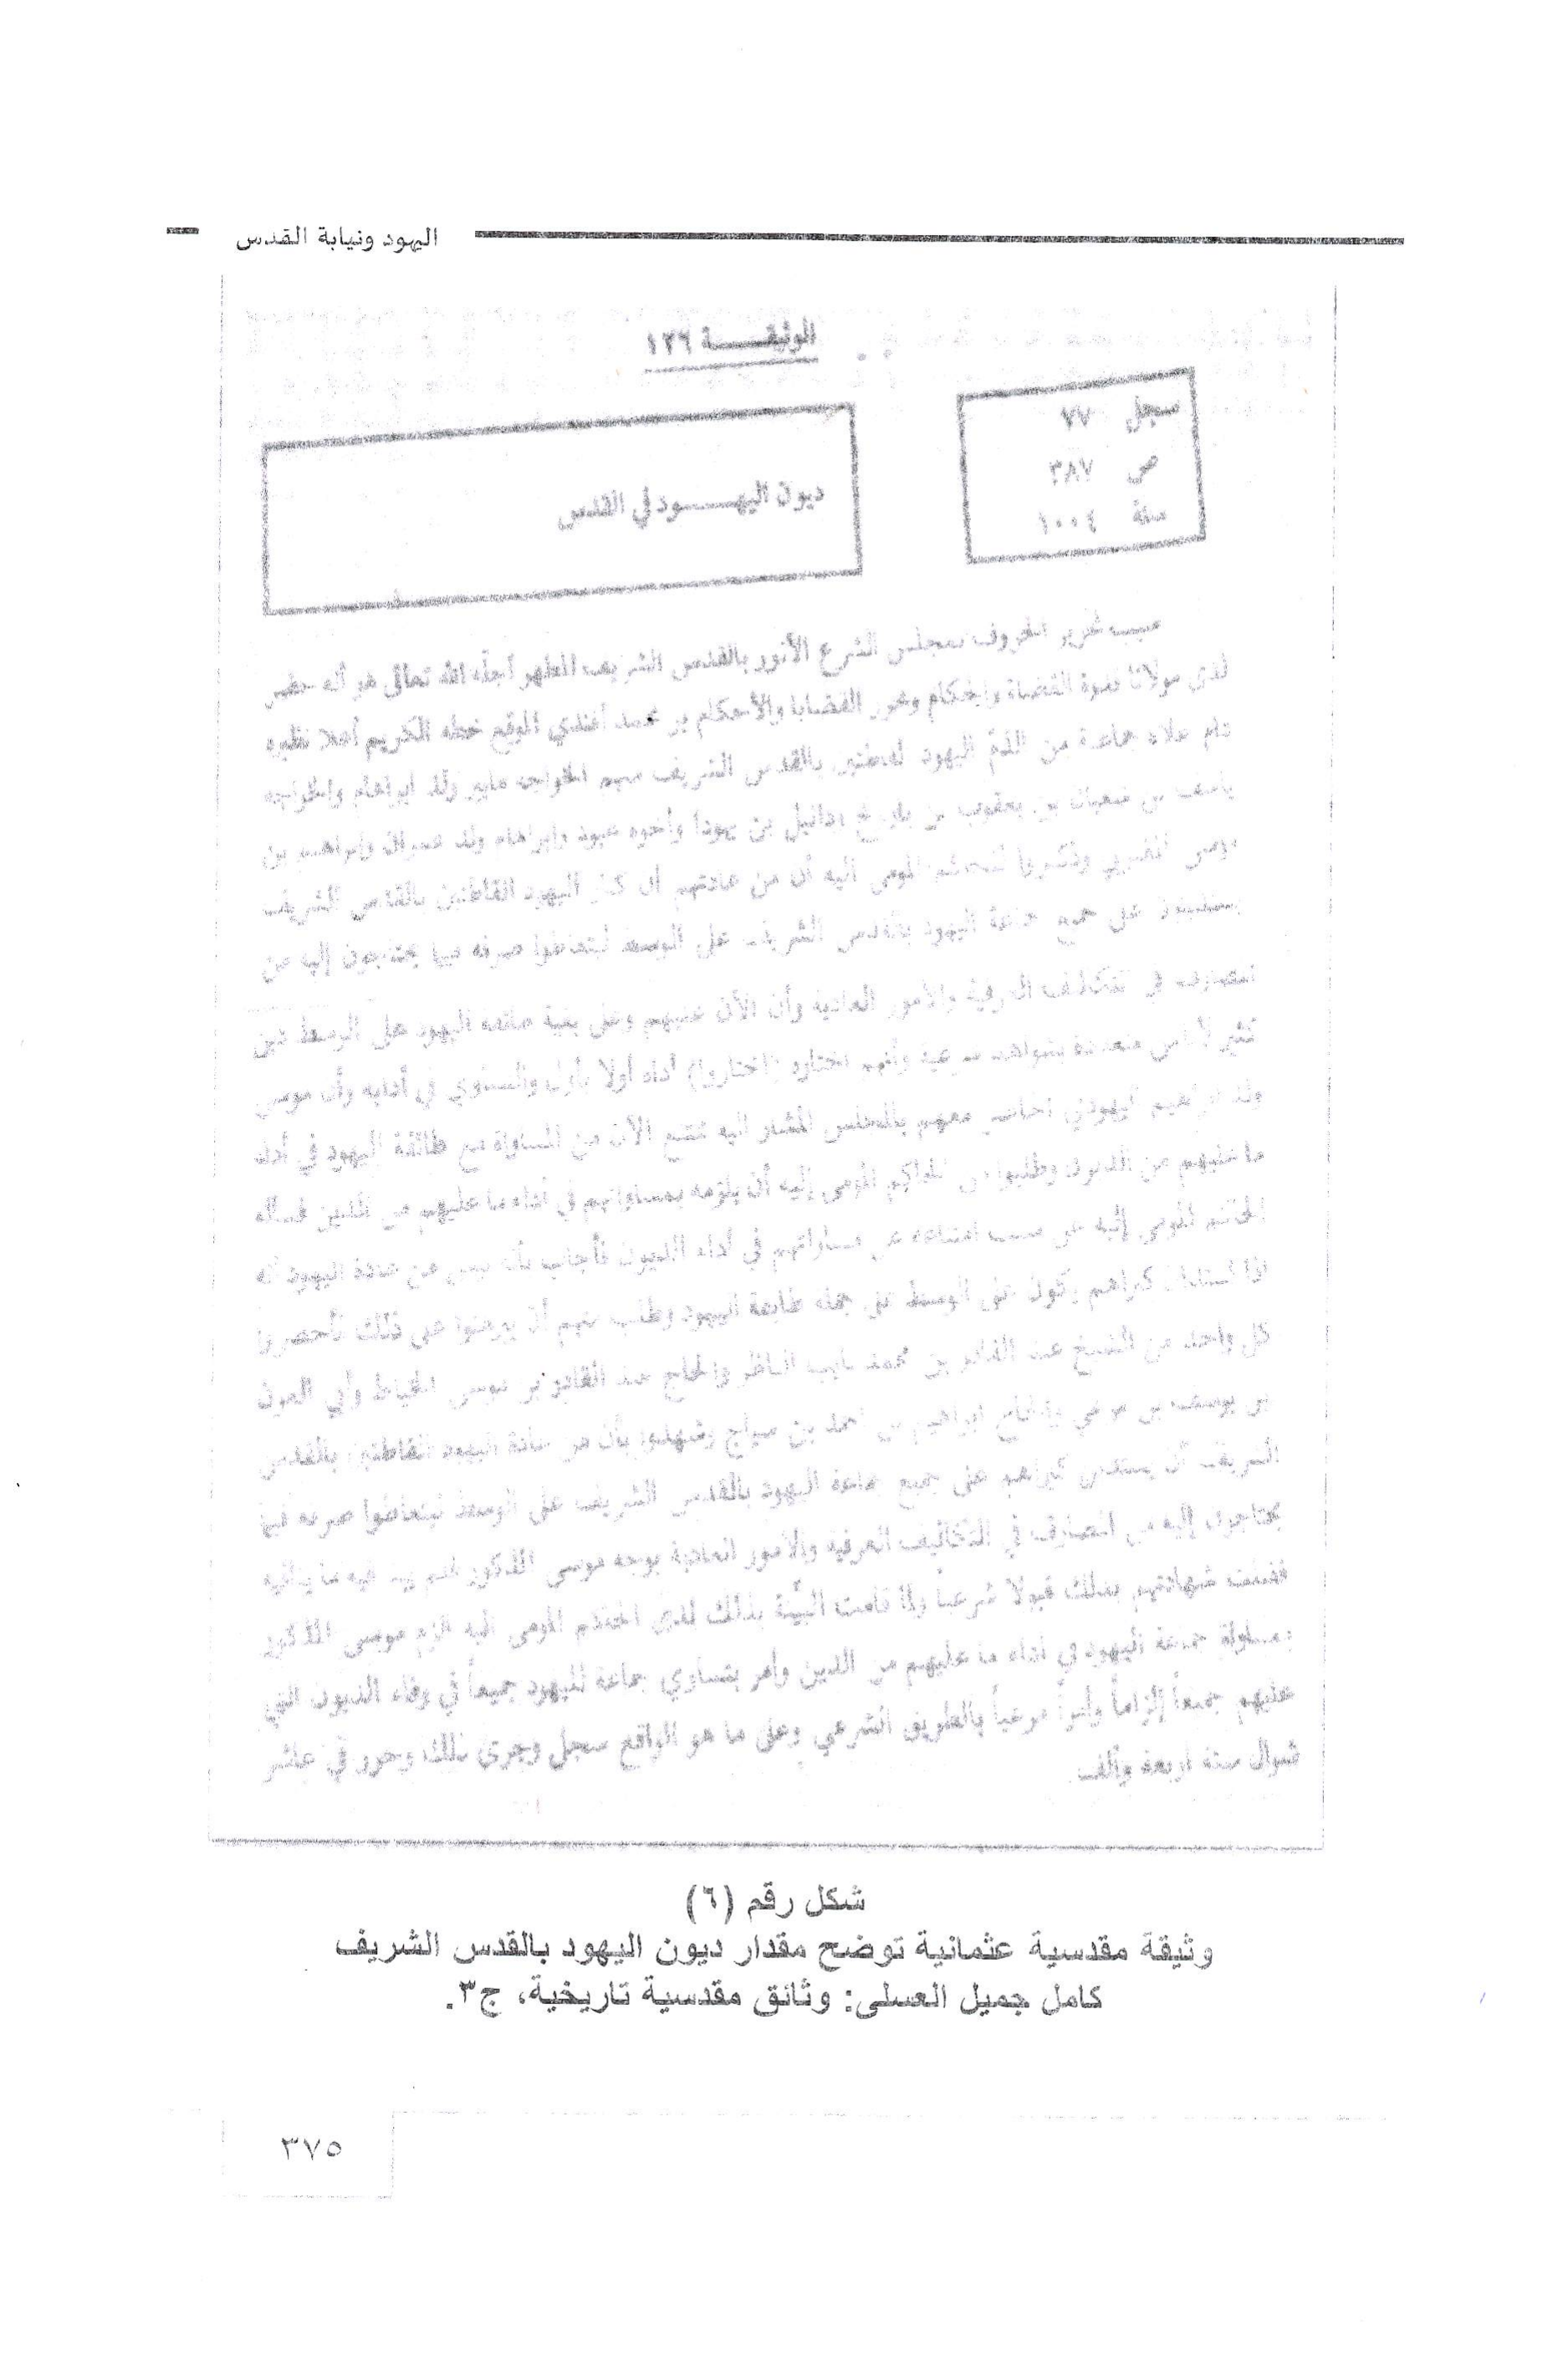 اليهود ونيابة القدس
الوثيقـــــة ١٢٦
سجل ٧٧
ص ٣٨٧
سنة ١٠٠٤
ديون اليهـــــود في القدس
الحروف بمجلس الشرع الأنور بالقدس الشريف المطهر أجله الله تعالى هو أنه حضر
لدى مولانا قدوة القضاة والحكام ومحرر القضايا والأحكام محمد أفندي الموقع خطه الكريم أعلا نظيره
دام علاه جماعة من اليهود بالقدس الشريف منهم الخواجه ولد ابراهام والخواجه
بن يعقوب بن بن يهودا وأخوه عبود وابراهام ولد عمران وابراهيم بن
موسى المومى اليه أن من عادتهم أن اليهود القاطنين بالقدس الشريف
على جميع جماعة اليهود بالقدس الشريف على الوسط ليتعاطوا صرفه فيما يحتاجون إليه من
المصارف في العرفية والأمور العادية وأن الآن عليهم وعلى بقية اليهود على الوسط دين
متعددة شرعية وأنهم اختاره (اختاروا) أداه أولا بأول في أدايه وأن موسى
ولد معهم بالمجلس المشار اليه الآن من المساواة مع طائفة اليهود في أداء
ما عليهم من الديون وطلبوا من الحاكم المومى إليه أن يلزمه بمساواتهم في أداء ما عليهم من الدين فسأله
المومى إليه عن سبب امتناعه عن مساواتهم في أداء الديون فأجاب بأنه ليس من عادة اليهود أنه
كبراهم يكون على الوسط على جملة طايفة اليهود وطلب منهم أن يبرهنوا على ذلك فأحضروا
كل واحد من الشيخ عبد القادر بن محمد نايب الناظر والحاج عبد القادر بن موسى الخياط وأبي العون
بن يوسف بن والحاج ابراهيم بن احمد بن سراج وشهدوا بأن من عادة اليهود القاطنين بالقدس
الشريف أن يستدين كبراهم على جميع جماعة اليهود بالقدس الشريف على الوسط ليتعاطوا صرفه فيما
يحتاجون إليه من المصارف في التكاليف العرفية والأمور العادية بوجه موسى المذكور فلم
شهادتهم بذلك قبولا شرعياً ولما قامت البينة بذلك لدى المومى اليه الزم موسى المذكور
بمساواة جماعة اليهود في أداء ما عليهم من الدين وأمر بتساوي جماعة اليهود جميعاً في وفاء الديون التي
عليهم جميعاً إلزاماً وأمراً مرعياً بالطريق الشرعي وعلى ما هو الواقع سجل وجرى ذلك وحرر في عاشر
شوال سنة أربعة وألف
شكل رقم (٦)
وثيقة مقدسية عثمانية توضح مقدار ديون اليهود بالقدس الشريف
كامل جميل العسلى: وثائق مقدسية تاريخية، ج٣.
٣٧٥